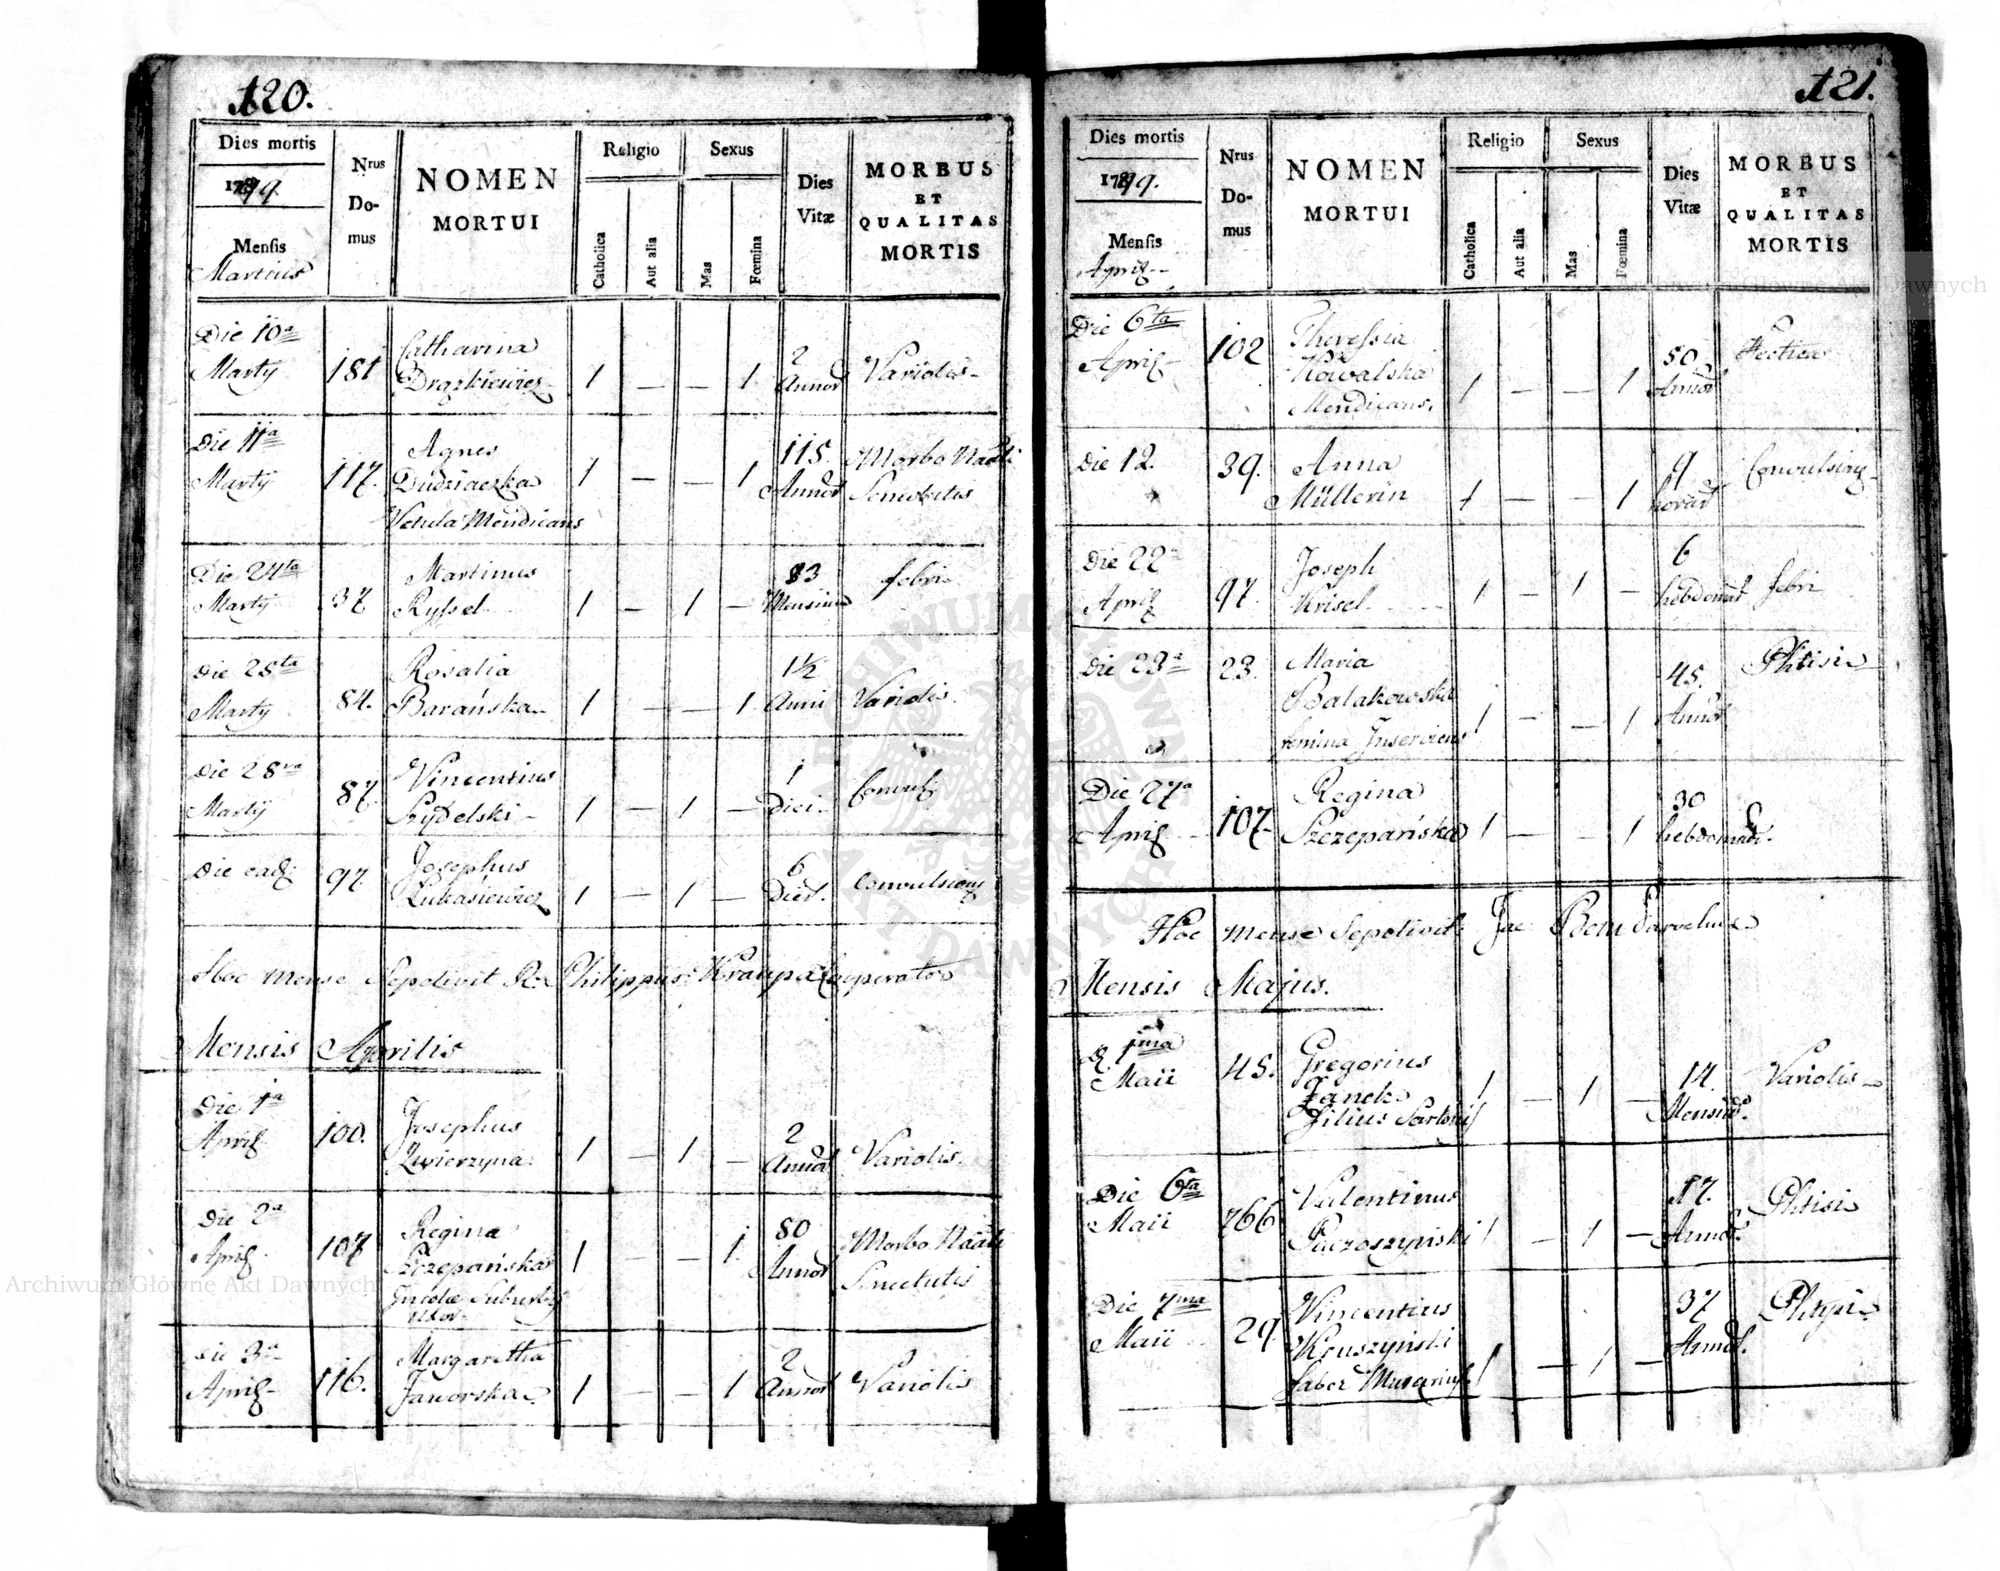 120.
Dies mortis
1799.
Mensis
Martius
Nrus
Do-
mus
NOMEN
MORTUI
Religio
Catholica
Aut alia
Sexus
Mas
Fœmina
Dies
Vitæ
MORBUS
ET
QUALITAS
MORTIS
Die 10a
Martÿ 181 Catharina
Drązkiewicz 1 — — 1 2
Annor Variolis
Die 11a
Martÿ 117. Agnes
Dudziaczka
Vetula Mendicans 1 — — 1 115.
Annor Morbo Nããli
Senectutis
Die 24ta
Martÿ 37 Martinus
Ryssel 1 — 1 — 3
Mensium febri
Die 25ta
Martÿ 84. Rosalia
Barańska 1 — — 1 1½
Anni Variolis
Die 28va
Martÿ 87. Vincentius
Szydelski 1 — 1 — 1
Diei Convuls
Die ead: 97. Josephus
Łukasiewicz 1 — 1 — 6
Dier. Convulsiong
Hoc mense Sepelivit R. Philippus Kraupa Cooperator
Mensis Aprilis
Die 1a
April 100. Josephus
Zwierzyna 1 — 1 — 2
Annor Variolis.
Die 2a
April 107 Regina
Szczepańska
Incolæ Suburby
uxor 1 — — 1 80
Annor Morbo Nãali
Snectutis
Die 3a
April 116. Margaretha
Jaworska 1 — — 1 2
Annor Variolis
121.
Dies mortis
1799.
Mensis
April
Nrus
Do-
mus
NOMEN
MORTUI
Religio
Catholica
Aut alia
Sexus
Mas
Fœmina
Dies
Vitæ
MORBUS
ET
QUALITAS
MORTIS
Die 6ta
April 102 Theressia
Kowalska
Mendicans. 1 — — 1 50.
Annor Hectica
Die 12. 39. Anna
Müllerin 1 — — 1 9
horar Convulsiong
Die 22a
April 97. Joseph
Krisel 1 — 1 — 6
hebdomat febri
Die 23a 23. Maria
Balakowska
femina Inserviens 1 — — 1 45.
Annor Phtisi
Die 27a
April 107. Regina
Szczepańska 1 — — 1 30
hebdomad.
Hoc mense Sepelivit Jac Bom Parochus
Mensis Majus.
D. 1ma
Maii 45. Gregorius
Janek
Filius Sartoris 1 — 1 — 14.
Mensium. Variolis
Die 6ta
Maii 766 Valentinus
Paczoszyński 1 — 1 — 17.
Annor. Phtisi
Die 7ma
Maii 29 Vincentius
Kruszyński
faber Murarius 1 — 1 — 37
Annor. Phtysi
Archiwum Główne Akt Dawnych
Archiwum Główne Akt Dawnych
ARCHIWUM GŁÓWNE
AKT DAWNYCH